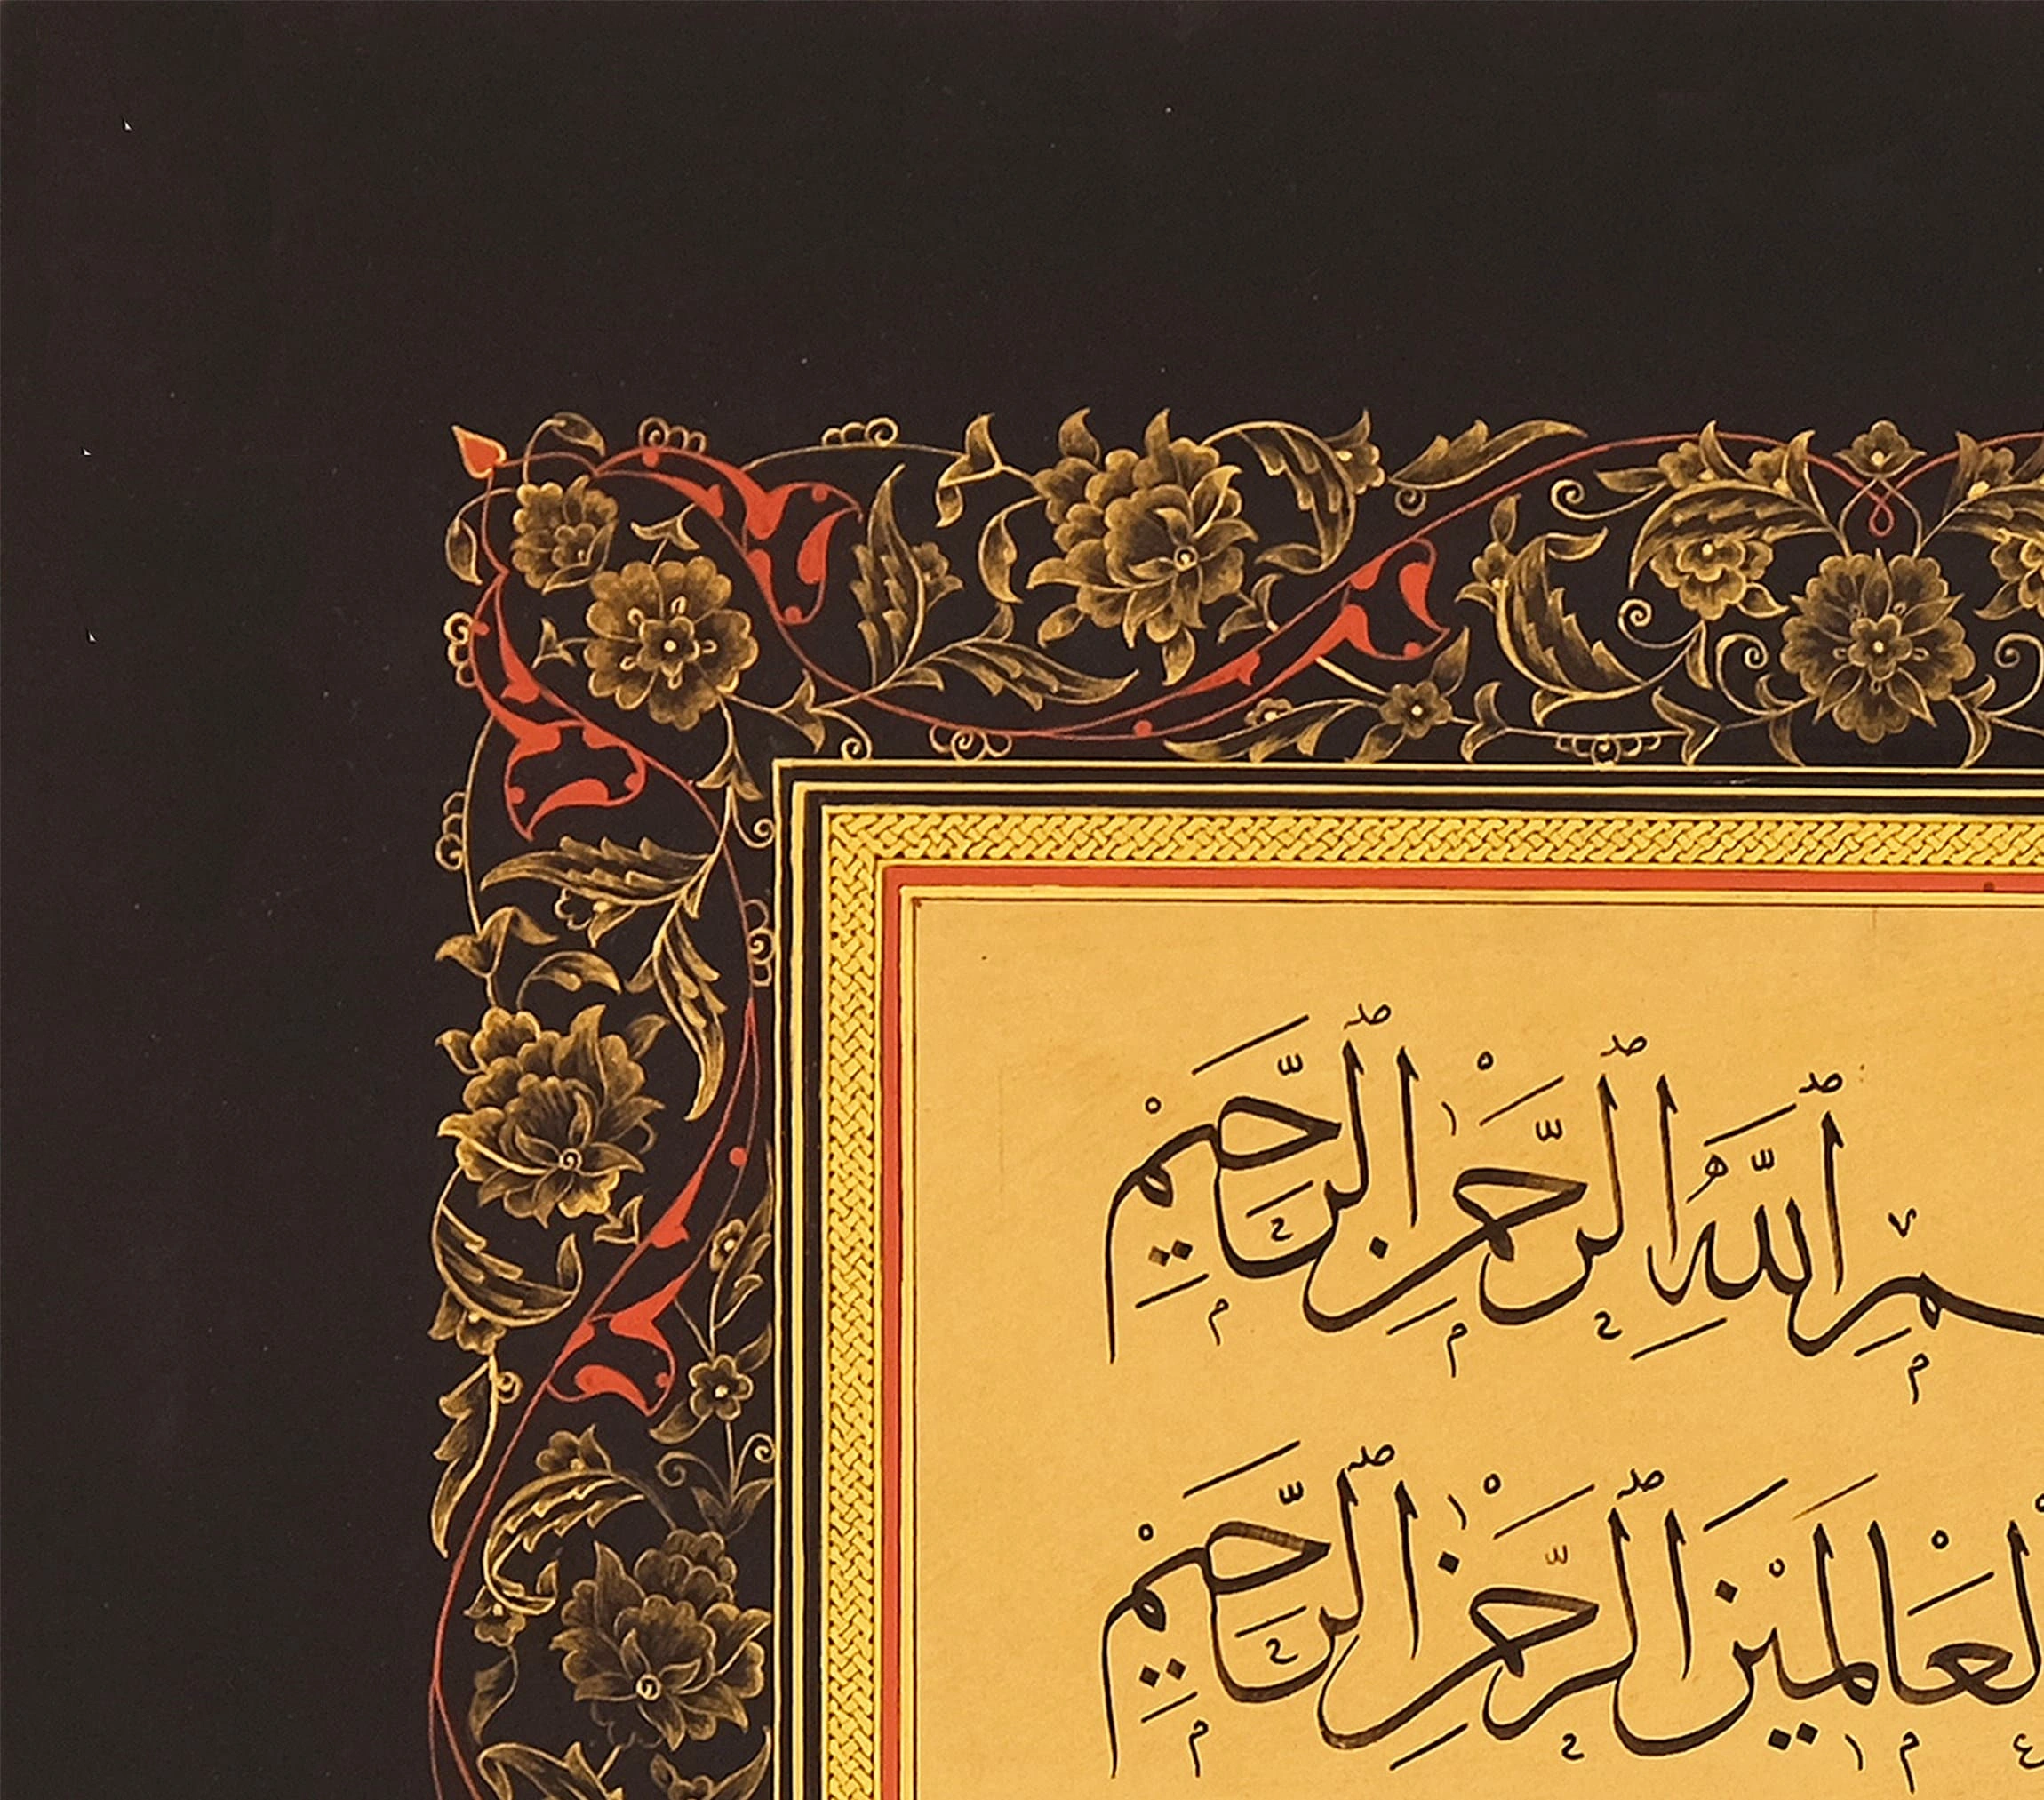 ـمِ ٱللَّهِ ٱلرَّحْمٰنِ ٱلرَّحِيْمِ
لْعَالَمِيْنَ ٱلرَّحْمٰنِ ٱلرَّحِيْمِ